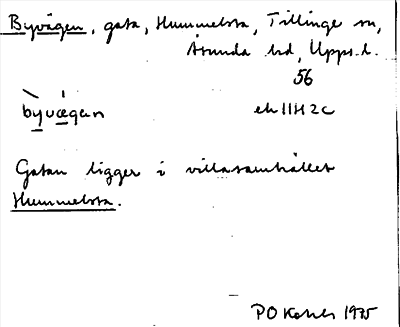 Byvägen, gata, Hummelsta, Tillinge sn,
Åsunda hd, Upps. l.
56
byvægen ek 11H 2c
Gatan ligger i villasamhället
Hummelsta.
PO 1975